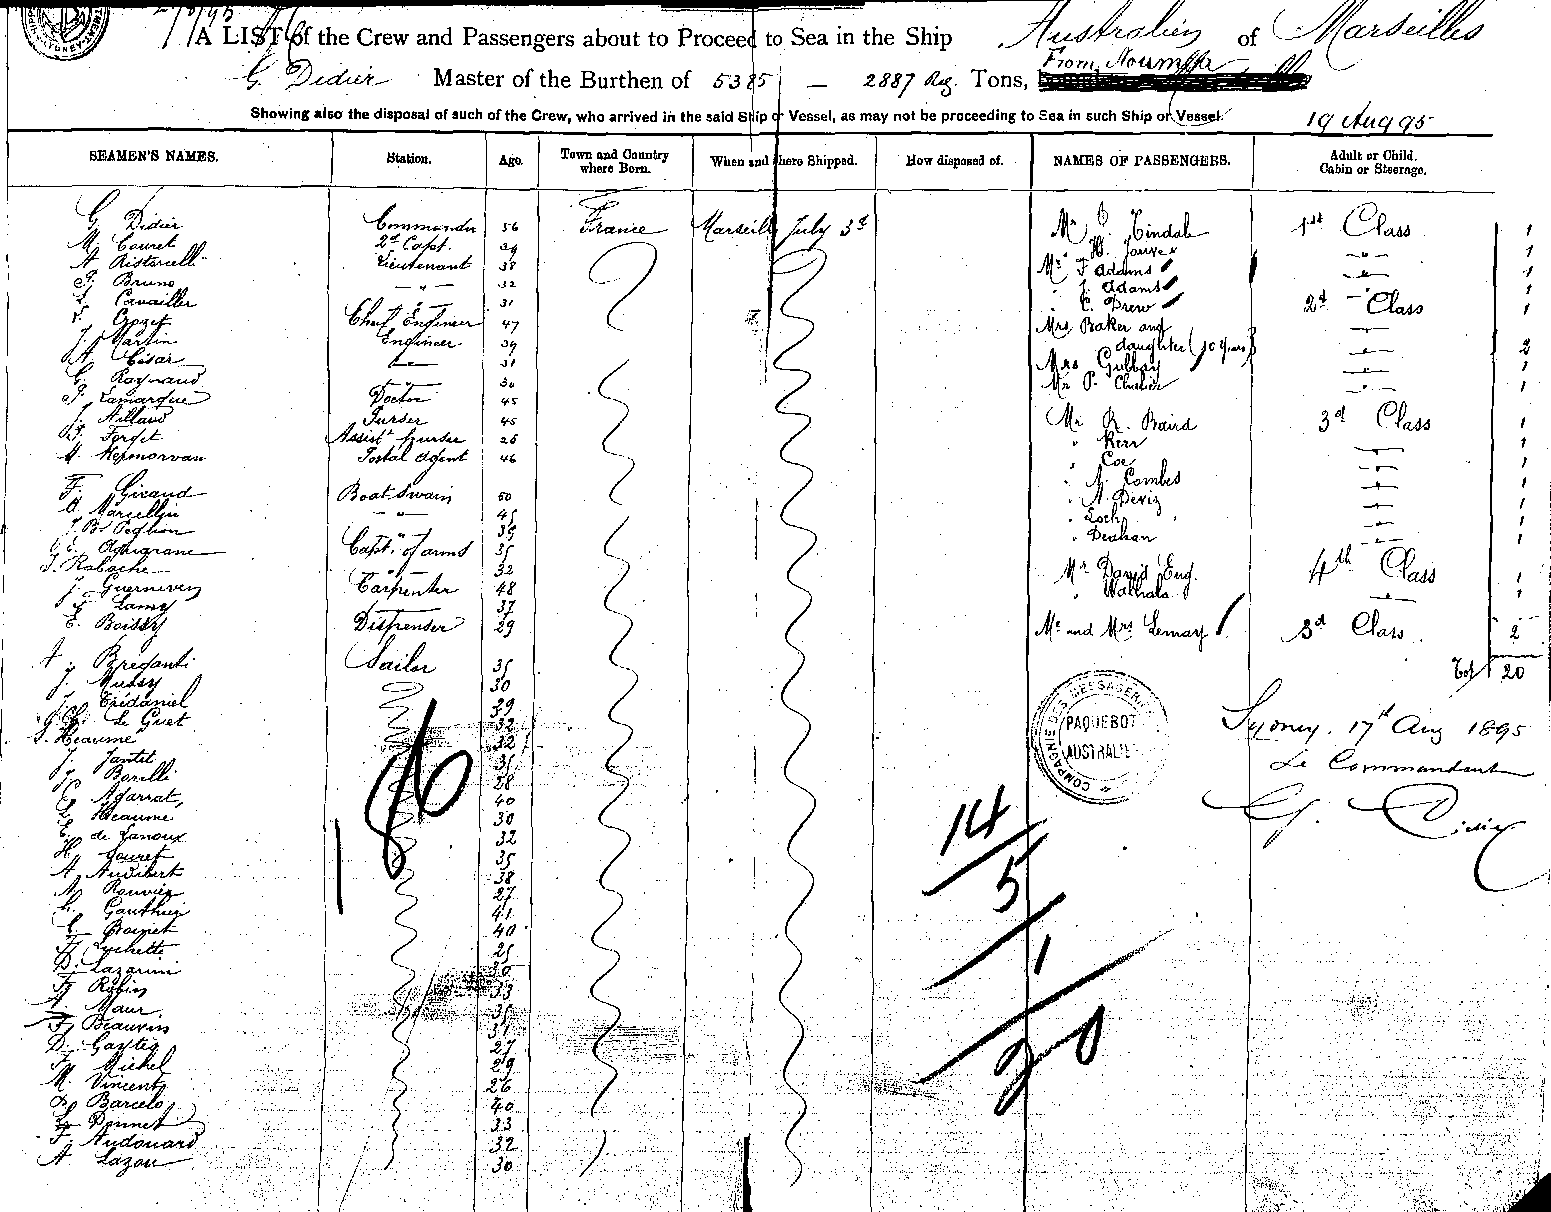 A LIST of the Crew and Passengers about to Proceed to Sea in the Ship Australien of Marseilles
G Didier Master of the Burthen of 5385 — 2887 Reg. Tons, From Nouméa
Showing also the disposal of such of the Crew, who arrived in the said Ship or Vessel, as may not be proceeding to Sea in such Ship or Vessel.
19 Aug 95
SEAMEN'S NAMES. Station. Age. Town and Country where Born. When and where Shipped. How disposed of. NAMES OF PASSENGERS. Adult or Child. Cabin or Steerage.
G Didier Commander 56 France Marseille July 3d Mr C. Tindale 1st Class 1
M. Couret 2d Capt. 39 1
A Ristorcelli Lieutenant 38 Mr F Adams 1
P. Bruno — " — 32 " J. Adams 1
Cavailler 31 " C. Drew 2d Class 1
Crozet Chief Engineer 47 Mrs Baker and
J. Martin Engineer 39 daughter (10 years) 2
A. César 31 Mrs Gubbay 1
G. Raynaud 30 Mr P. 1
P. Lamarque Doctor 45
J. Aillaud Purser 45 Mr R. Baird 3d Class 1
Forget Assist purser 26 " Kerr 1
Kermorvan Postal agent 46 " Coe 1
F. Giraud Boat Swain 50 " A. Combes 1
A. Marcellin — " — 45 " A. Deviz 1
J. B. Peghon " 39 " Loch 1
Capt. of arms 35 " Deahan 1
J. Rabache " 32
J. Guerneven Carpenter 48 Mr David Eug. 4th Class 1
Lamy 37 " Walhala 1
E. Boissy Dispenser 29 Mr and Mrs Lemary 3d Class 2
A. Breganti Sailor 35 Tot 20
J. Mussy 30
J. Trédaniel 39
Le Guet 32
Heaume 32
J. Jantet 35
J. Borelli 28
Agarrat 40
Heaume 30
E. de Lanoux 32
H. Couret 35
A. Audibert 38
A. Rouvier 27
L. Gauthier 41
E. 40
F. Luchette 25
D. Lazarini 30
F. Robin 33
Maur 35
F. Beauvois 31
D. 27
F. Michel 29
M. Vincent 26
Barcelo 40
Donnet 33
F. Audouard 32
A Lazou 30
COMPAGNIE DES MESSAGERIES
PAQUEBOT
AUSTRALIEN
Sydney, 17th Aug 1895
Le Commandant
G. Didier
14
5
1
20